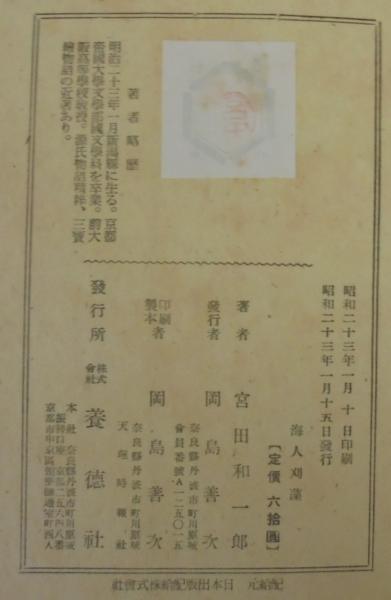 昭和二十三年一月十日印刷
昭和二十三年一月十五日發行
海人刈藻
【定價 六拾圓】
著者 宮田和一郎
發行者 岡島善次
奈良縣丹波市町川原城
會員番號A一二五〇一五
印刷者
製本
岡島善次
奈良縣丹波市町川原城
天理時報社
發行所 株式會社 養德社
本社 奈良縣丹波市町川原城
京都市中京區
著者略歷
明治二十三年一月新潟縣に生る。京都
帝國大學文學部國文學科を卒業。前大
阪高等學校敎授。源氏物語
繪物語の近著あり。
配給元 日本出版配給株式會社